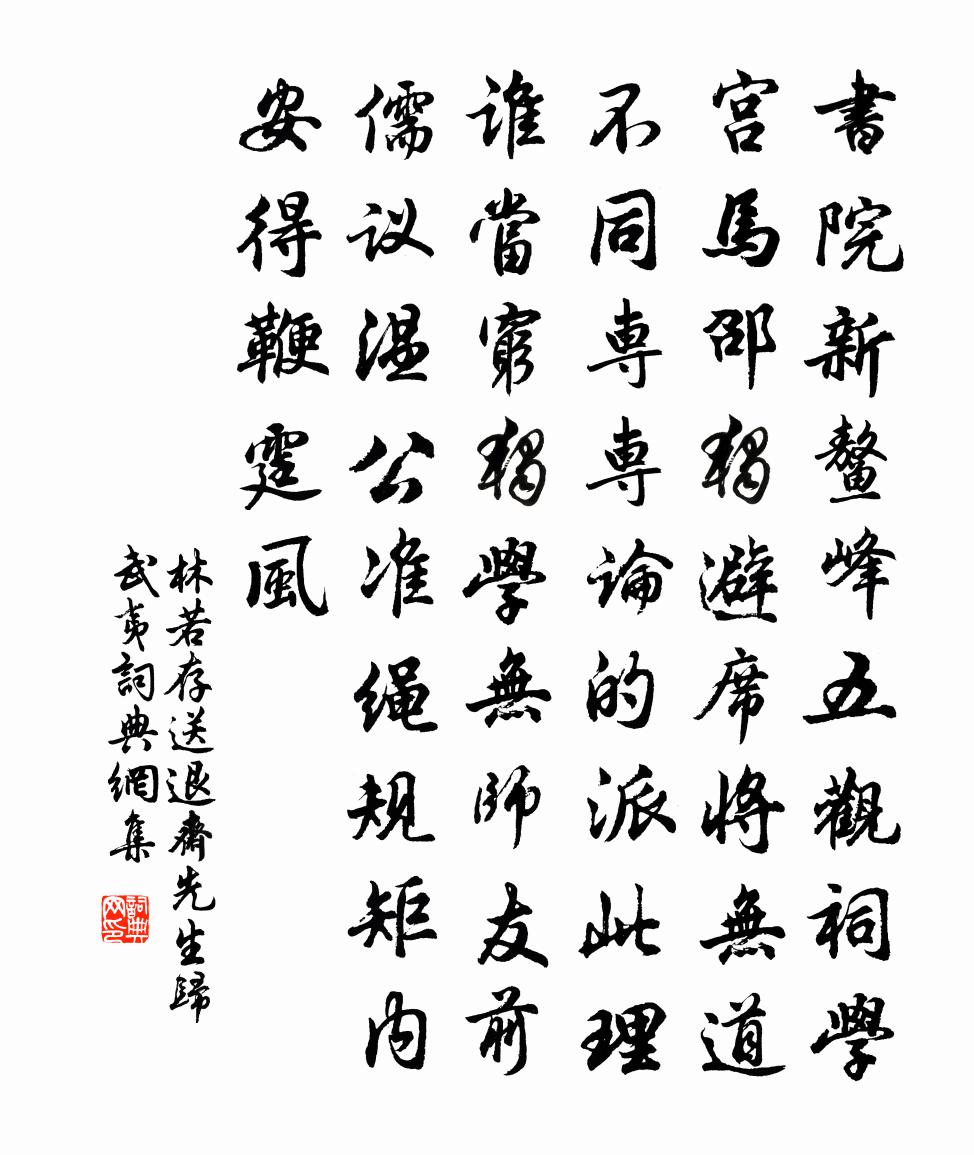 書院新鳌峰五觀祠學
宫馬邵獨避席將無道
不同専専論的派此理
谁當窮獨學無師友前
儒议温公准绳規矩内
安得鞭霆風
林若存送退齋先生歸
武夷詞典網集
詞典网印